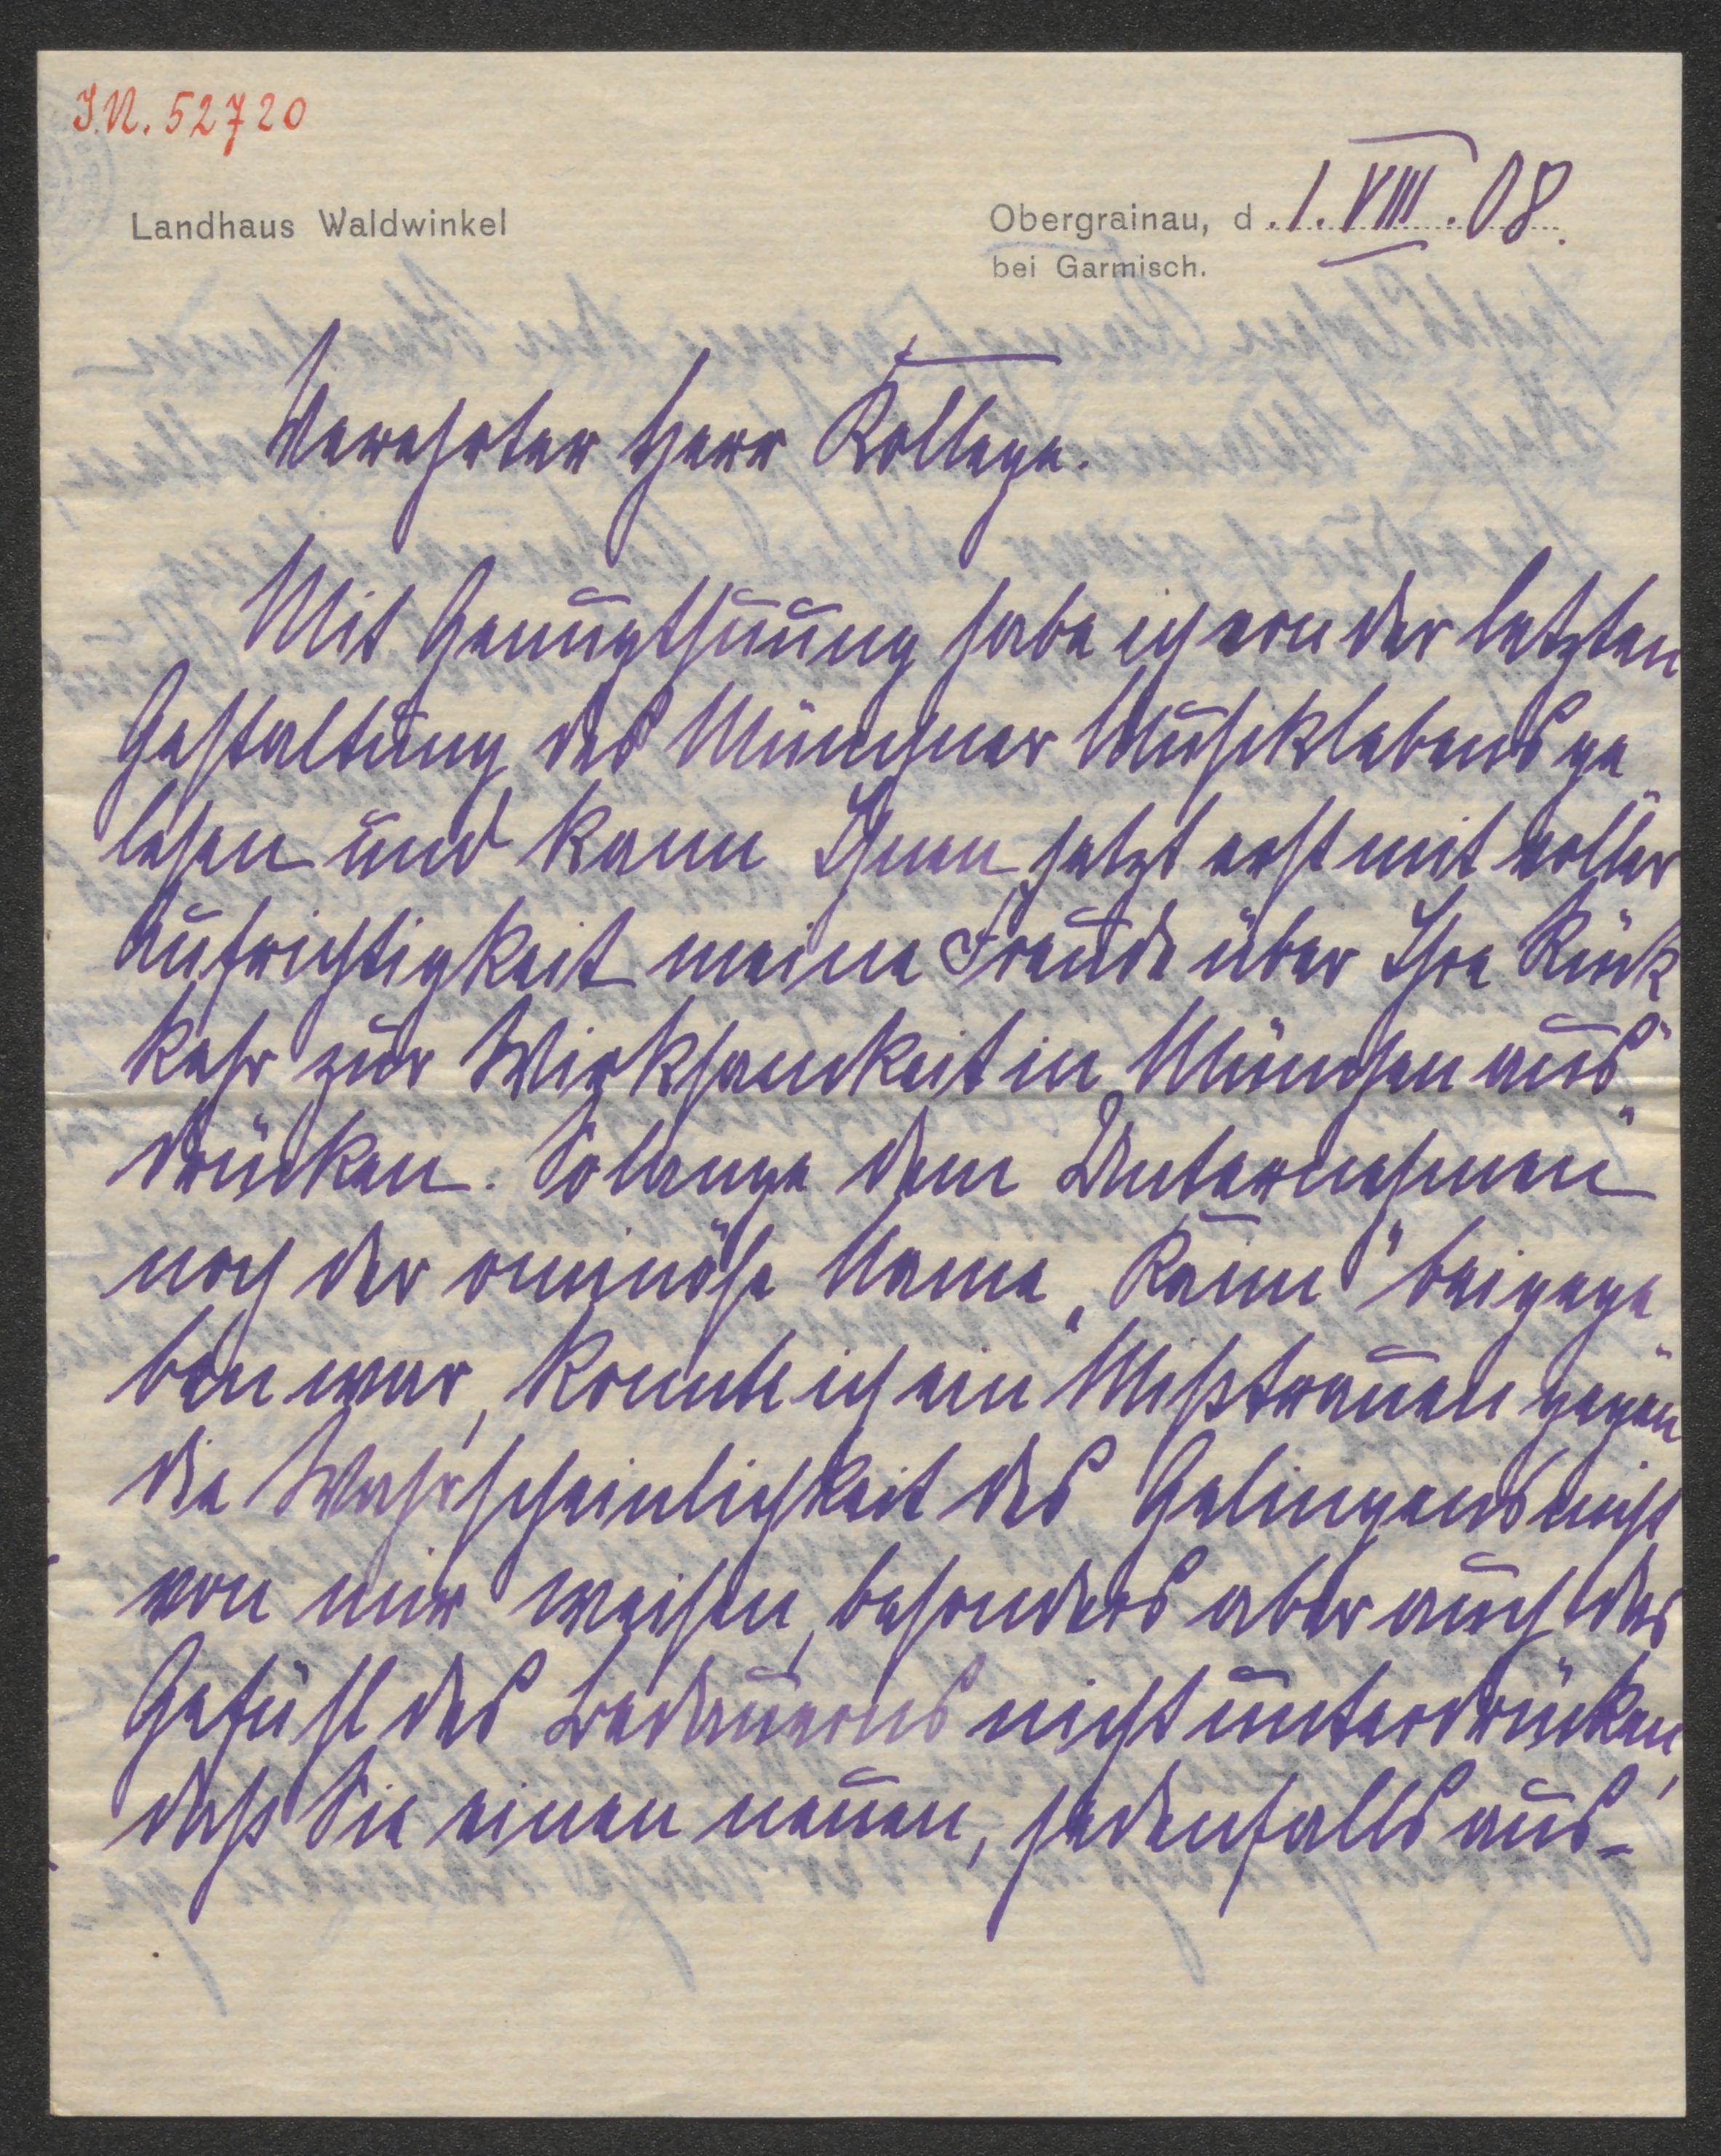 I.N. 52720
Landhaus Waldwinkel
Obergrainau, d. 1. VIII. 08.
bei Garmisch.
Verehrter Herr Kollege.
Mit Genugthuung habe ich von der letzten
Gestaltung des Münchner Musiklebens ge-
lesen und kann Ihnen jetzt erst mit voller
Aufrichtigkeit meine Freude über Ihre Rück
kehr zur Wirksamkeit in München aus-
drücken. Solange dem Unternehmen
noch der ominöse Name „Kaim" beigege-
ben war, konnte ich ein Mißtrauen gegen
die Wahrscheinlichkeit des Gelingens nicht
von mir weisen, besonders aber auch das
Gefühl des Bedauerns nicht unterdrücken,
daß Sie einen neuen, jedenfalls aus-